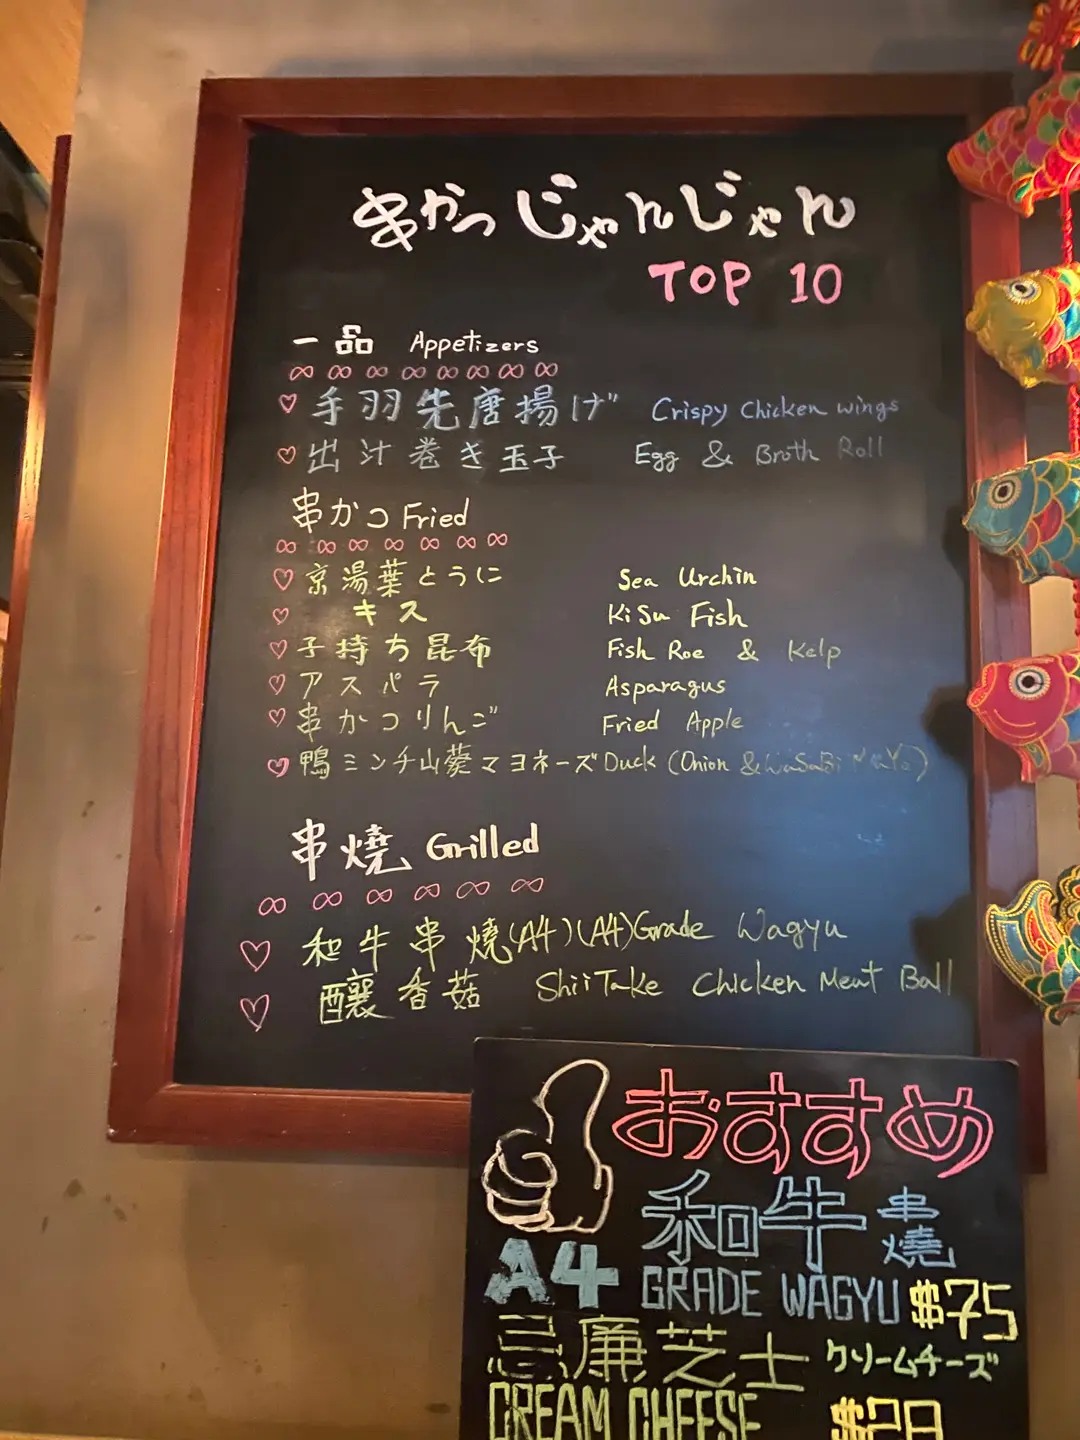 串かつ じゃんじゃん
TOP 10
一品 Appetizers
手羽先唐揚げ Crispy Chicken wings
出汁巻き玉子 Egg & Broth Roll
串かつ Fried
京湯葉とうに Sea Urchin
キス Kisu Fish
子持ち昆布 Fish Roe & Kelp
アスパラ Asparagus
串かつりんご Fried Apple
鴨ミンチ山葵マヨネーズ Duck (Onion & WaSaBi MaYo)
串燒 Grilled
和牛串燒(A4) (A4) Grade Wagyu
釀香菇 ShiiTake Chicken Meat Ball
おすすめ
和牛串燒
A4 GRADE WAGYU $75
忌廉芝士 クリームチーズ
CREAM CHEESE